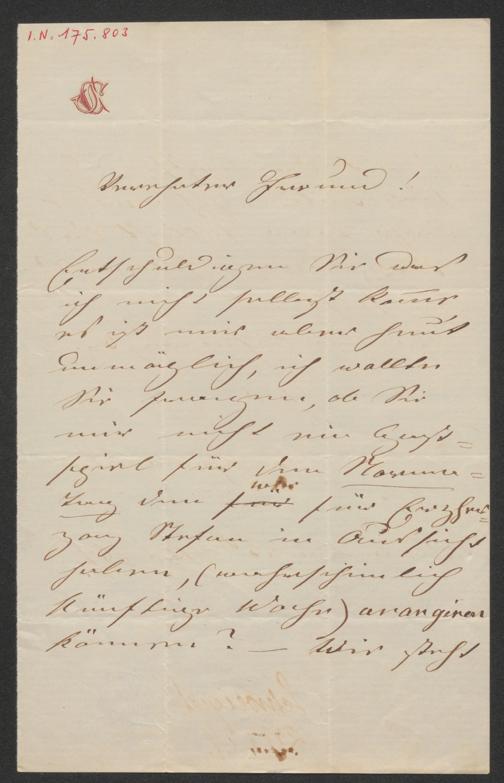 I.N. 175.803
Verehrter Freund!
Entschuldigen Sie das
ich nicht selbst kom̄e
es ist mir aber heut
unmöglich, ich wollte
Sie fragen, ob Sie
mir nicht ein Gast=
spiel für den Norma=
tag den wir
für Erzher=
zog Stefan in Aussicht
haben, (wahrscheinlich
künftige Woche) arangiren
können? — Wie steht